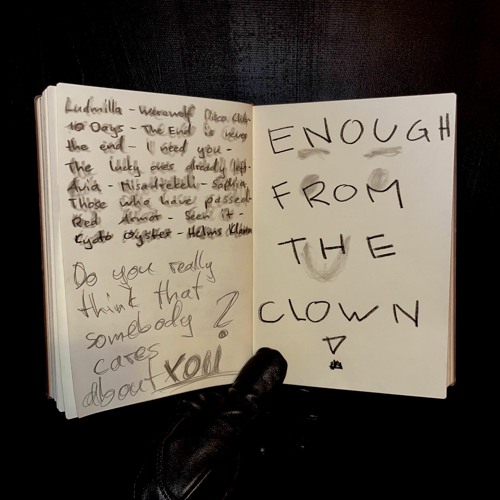 Ludmilla - Werewolf Disco Club -
10 Days - The End is never
the end - I need you -
The lucky ones already left -
Avia - - Sophia,
Those who have passed
Red Armor - Seen it -
Oyster - Helms
Do you really
think that
somebody
cares
about YOU?
ENOUGH
FROM
THE
CLOWN
!